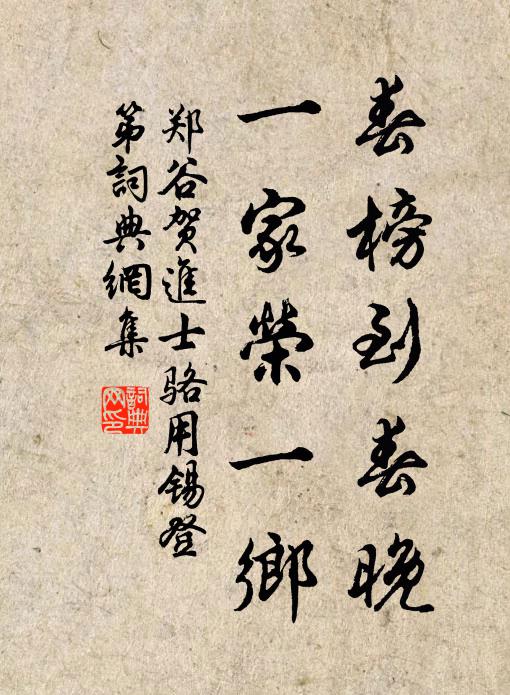 春榜到春晚
一家榮一鄉
郑谷贺進士骆用锡登
第詞典網集
詞典网印